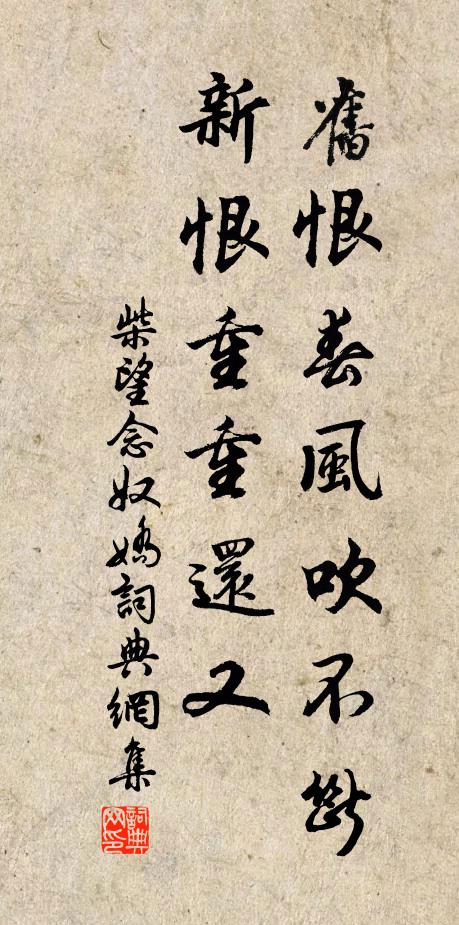 舊恨春風吹不斷
新恨重重還又
柴望念奴嬌詞典網集
詞典網印